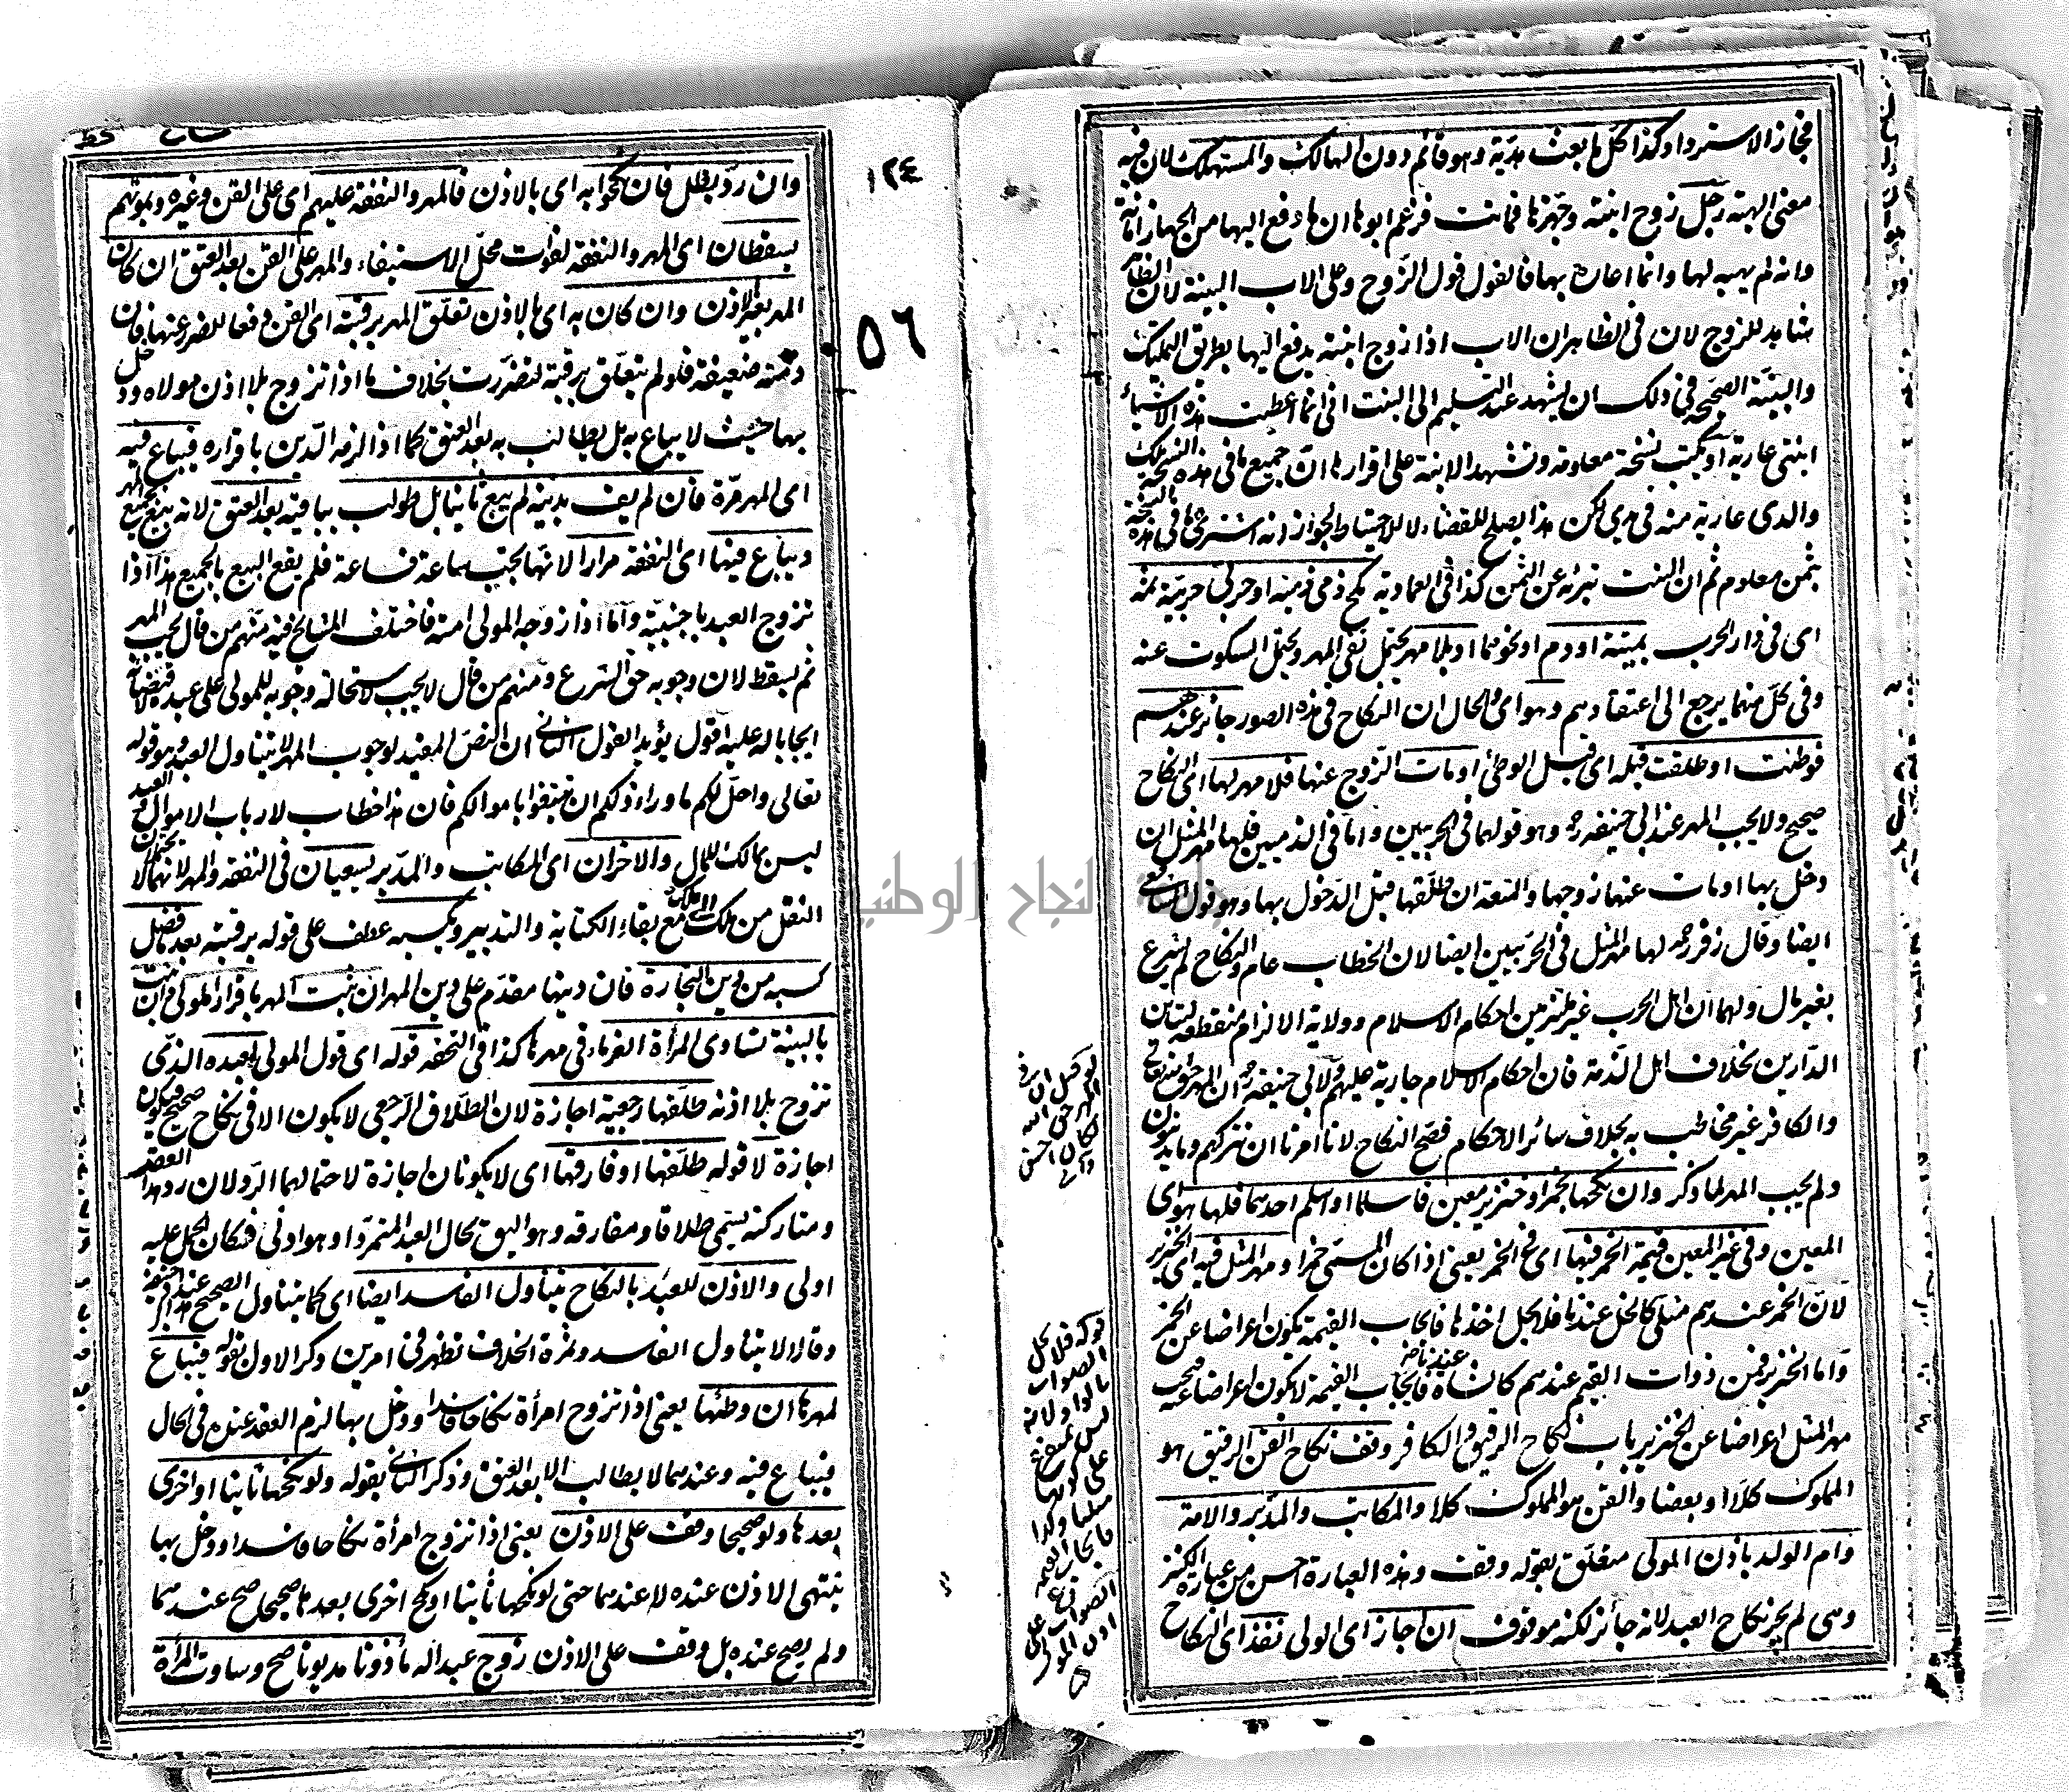 فجاز الاسترداد وكذا كل ما بعث هدية وهو قائم دون الهالك والمستهلك لان فيه
معنى الهبة رجل زوج ابنته وجهزها فماتت فزعم ابوها ان ما دفع اليها من الجهاز امانة
وانه لم يهبه لها وانما اعارة بها فالقول قول الزوج وعلى الاب البينة لان الظاهر
شاهد للزوج لان في الظاهر ان الاب اذا زوج ابنته يدفع اليها بطريق التمليك
والبينة الصحيحة في ذلك ان يشهد عند التسليم الى البنت اني انما اعطيت هذه الاشياء
ابنتي عارية او يكتب نسخة معلومة وتشهد الابنة على اقرارها ان جميع ما في هذه النسخة ملك
والدي عارية منه في يدي لكن هذا يصلح للقضاء لا للاحتياط لجواز انه اشترى لها في هذه النسخة
بثمن معلوم ثم ان البنت تبرئه عن الثمن كذا في العمادية نكح ذمي ذمية او حربي حربية ثمه
اي في دار الحرب بميتة او دم او نحوهما او بلا مهر يحتمل نفي المهر ويحتمل السكوت عنه
وفي كل منهما يرجع الى اعتقادهم وهو اي والحال ان النكاح في هذه الصور جائز عندهم
فوطئت او طلقت قبله اي قبل الوطئ او مات الزوج عنها فلا مهر لها اي النكاح
صحيح ولا يجب المهر عند ابي حنيفة رح وهو قولهما في الحربيين واما في الذميين فلها مهر المثل ان
دخل بها او مات عنها زوجها والمتعة ان طلقها قبل الدخول بها وهو قول الشافعي
ايضا وقال زفر رح لها مهر المثل في الحربيين ايضا لان الخطاب عام والنكاح لم يشرع
بغير مال ولهما ان اهل الحرب غير ملتزمين احكام الاسلام وولاية الالزام منقطعة لتباين
الدارين بخلاف اهل الذمة فان احكام الاسلام جارية عليهم ولابي حنيفة رح ان المهر حق الله تعالى
والكافر غير مخاطب به بخلاف سائر الاحكام فصح النكاح لانا امرنا ان نتركهم وما يدينون
ولم يجب المهر لما ذكر وان نكحها بخمر او خنزير معين فاسلما او اسلم احدهما فلها هو اي
المعين وفي غير المعين قيمة الخمر فيها اي في الخمر يعني اذا كان المسمى خمرا ومهر المثل فيه اي الخنزير
لان الخمر عندهم مثلي كالخل عندنا فلا يحل اخذها فايجاب القيمة يكون اعراضا عن الخمر
واما الخنزير فمن ذوات القيم عندهم كالشاة عندنا فايجاب القيمة لا يكون اعراضا عنه فيجب
مهر المثل اعراضا عن الخنزير باب نكاح الرقيق والكافر وقف نكاح القن الرقيق هو
المملوك كلا او بعضا والقن هو المملوك كلا والمكاتب والمدبر والامة
وام الولد باذن المولى متعلق بقوله وقف وهذه العبارة احسن من عبارة الكنز
وهي لم يجز نكاح العبد لانه جائز لكنه موقوف ان اجاز اي المولى نفذ اي النكاح
لو قيل ان
المهر حق الله
لكان احسن
قوله فلا يحل
الصواب
بالواو لانه
ليس
على كونها
مثليا وكذا
فايجاب القيمة
الصواب
على
المولى
١٢٤
٥٦
وان رد بطل فان نكحوا به اي بالاذن فالمهر والنفقة عليهم اي على القن وغيره وبموتهم
يسقطان اي المهر والنفقة لفوات محل الاستيفاء والمهر على القن بعد العتق ان كان
المهر بغير الاذن وان كان به اي بالاذن تعلق المهر برقبته اي القن دفعا للضرر عنها فان
ذمته ضعيفة فلو لم يتعلق برقبته لتضررت بخلاف ما اذا تزوج بلا اذن مولاه ودخل
بها حيث لا يباع به بل يطالب به بعد العتق كما اذا لزمه الدين باقراره فيباع فيه
اي المهر مرة فان لم يف بدينه لم يبع ثانيا بل طولب بباقيه بعد العتق لانه بيع بجميع المهر
ويباع فيها اي النفقة مرارا لانها تجب ساعة فساعة فلم يقع البيع بالجميع هذا اذا
تزوج العبد باجنبية واما اذا زوجه المولى امته فاختلف المشايخ فيه منهم من قال يجب المهر
ثم يسقط لان وجوبه حق الشرع ومنهم من قال لا يجب لاستحالة وجوبه للمولى على عبده
ايجابا له عليه اقول يؤيد القول الثاني ان النص المفيد لوجوب المهر لا يتناول العبد وهو قوله
تعالى واحل لكم ما وراء ذلكم ان تبتغوا باموالكم فان هذا خطاب لارباب الاموال والعبد
ليس بمالك للمال والاخران اي المكاتب والمدبر يسعيان في النفقة والمهر لانهما لا يحتملان
النقل من ملك الى ملك مع بقاء الكتابة والتدبير وبكسبه عطف على قوله برقبته بعد ما فضل
كسبه من دين التجارة فان دينها مقدم على دين المهر ان ثبت المهر باقرار المولى وان ثبت
بالبينة تساوى المرأة الغرماء في مهرها كذا في التحفة قوله اي قول المولى لعبده الذي
تزوج بلا اذنه طلقها رجعية اجازة لان الطلاق الرجعي لا يكون الا في نكاح صحيح فيكون
اجازة لا قوله طلقها او فارقها اي لا يكونان اجازة لاحتمالهما الرد لان رد هذا العقد
ومتاركته يسمى طلاقا ومفارقة وهو اليق بحال العبد المتمرد او هو ادنى فكان الحمل عليه
اولى والاذن للعبد بالنكاح يتناول الفاسد ايضا اي كما يتناول الصحيح هذا عند ابي حنيفة
وقالا لا يتناول الفاسد وثمرة الخلاف تظهر في امرين ذكر الاول بقوله فيباع
لمهرها ان وطئها يعني اذا تزوج امرأة نكاحا فاسدا ودخل بها لزم العقد عنده في الحال
فيباع فيه وعندهما لا يطالب الا بعد العتق وذكر الثاني بقوله ولو نكحها ثانيا او اخرى
بعدها ولو صحيحا وقف على الاذن يعني اذا تزوج امرأة نكاحا فاسدا ودخل بها
ينتهي الاذن عنده لا عندهما حتى لو نكحها ثانيا او نكح اخرى بعدها صحيحا صح عندهما
ولم يصح عنده بل وقف على الاذن زوج عبدا له مأذونا مديونا صح وساوت المرأة
جامعة النجاح الوطنية